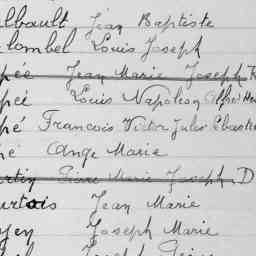 llbault Jean Baptiste
lombel Louis Joseph
pée Jean Marie Joseph
pcé Louis Napoléon Alfred
pé François Victor Jules
pé Ange Marie
rtin Pierre Marie Joseph D
urtois Jean Marie
yen Joseph Marie
Joseph